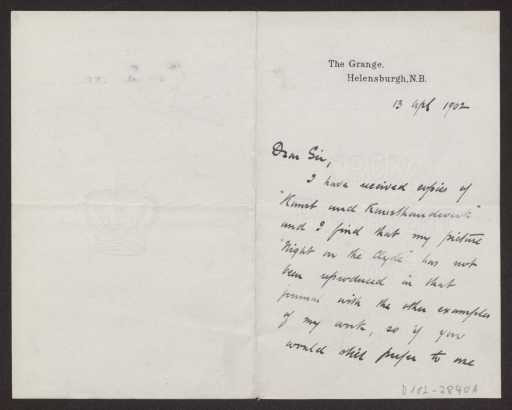 The Grange,
Helensburgh, N.B.
13 Apl 1902
Dear Sir,
I have received copies of
"Kunst und Kunsthandwerk"
and I find that my picture
"Night on the Clyde" has not
been reproduced in that
journal with the other examples
of my work, so if you
would still prefer to
D102-2840A